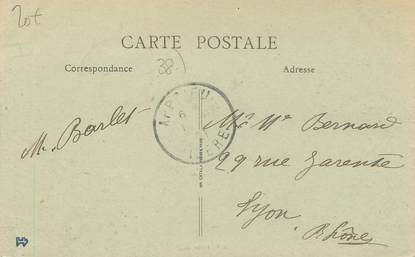 20€
CARTE POSTALE
Correspondance
38
Adresse
M. Barlet
Mr Me Bernard
29 rue Tarente
Lyon
Rhône